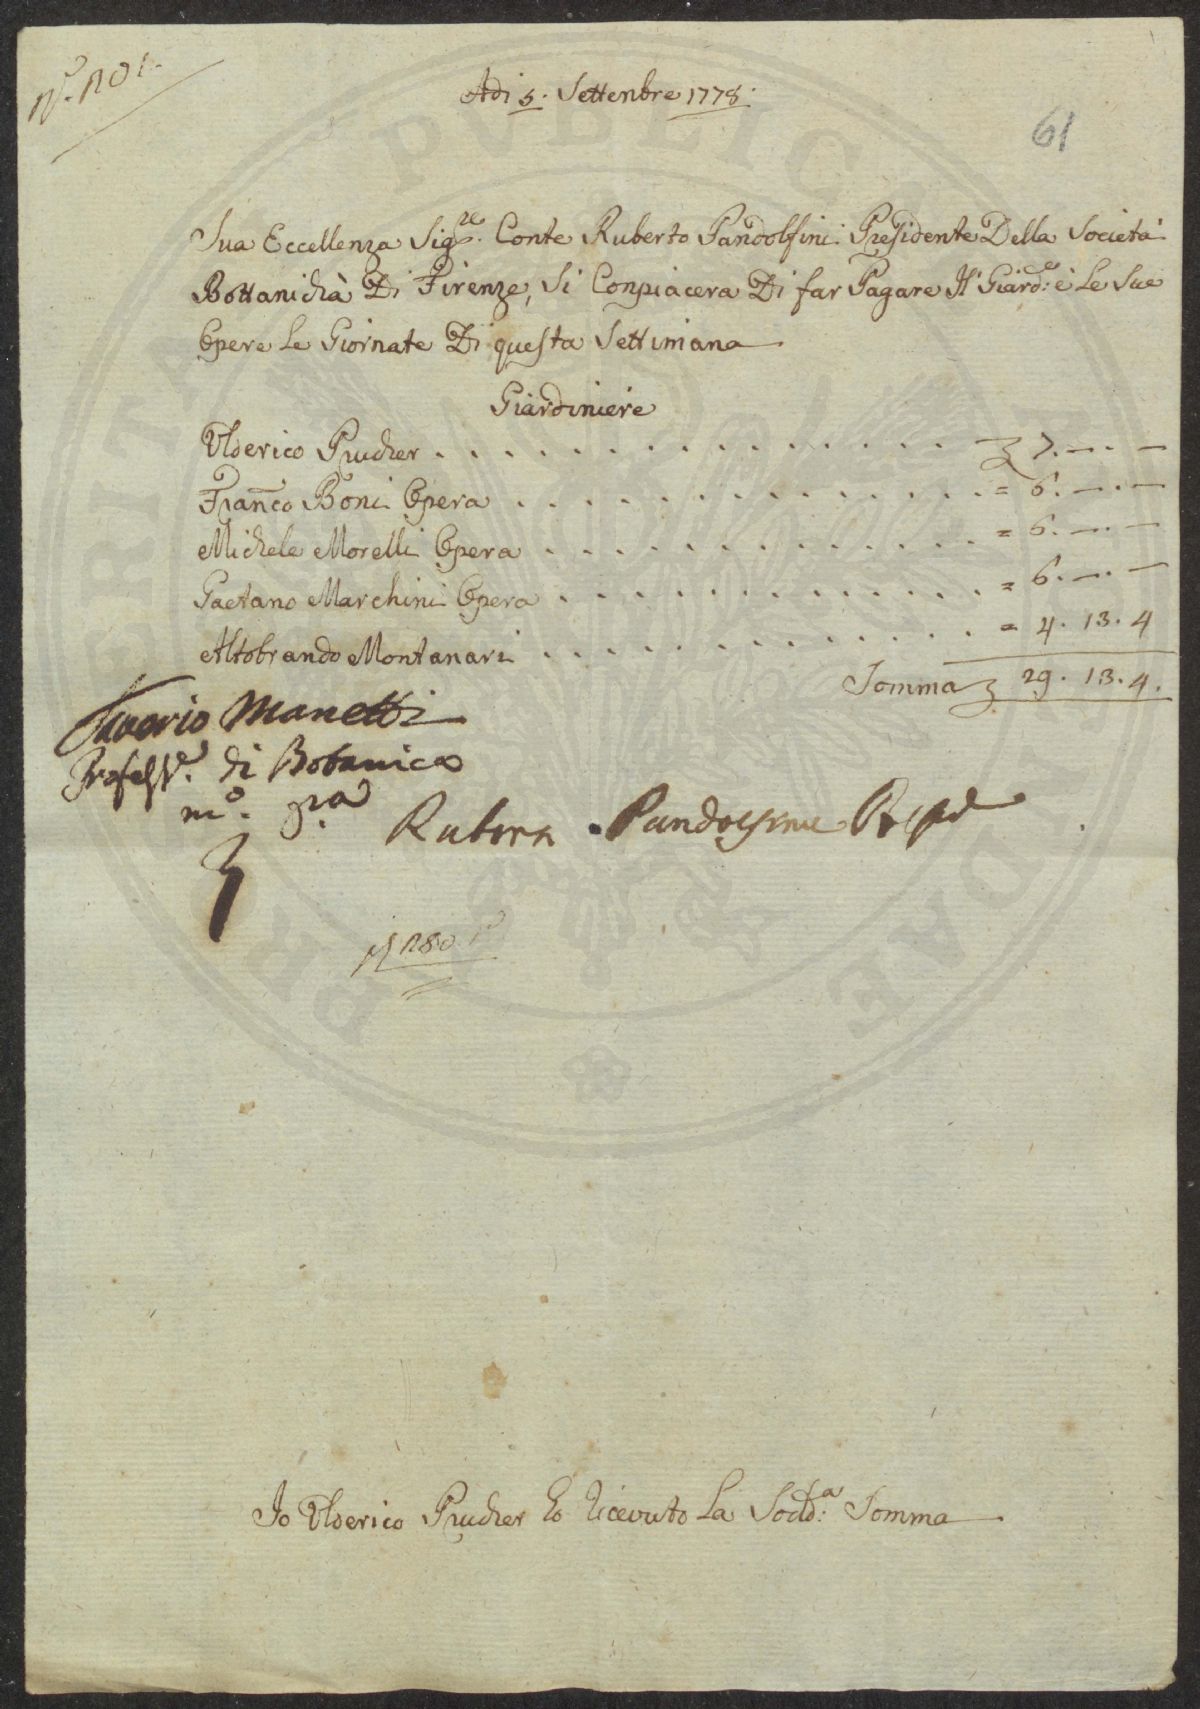 N.º 201.
Adi 5. Settenbre 1778.
61
Sua Eccellenza Sig.re Conte Ruberto Pandolfini Presidente Della Società
Bottanichà Di Firenze, Si Conpiacera Di far Pagare Il Giard.e è Le Sue
Opere Le Giornate Di questa Settimana
Giardiniere
Ulderico Prucher . . . . . . . . . . . . . . . 7. —. —
Fran̄co Boni Opera . . . . . . . . . . . . . = 6. —. —
Michele Morelli Opera . . . . . . . . . . . . = 6. —. —
Gaetano Marchini Opera . . . . . . . . . . . . = 6. —. —
Altobrando Montanari . . . . . . . . . . . . = 4. 13. 4
Somma 29. 13. 4.
Saverio Manetti
Profess.e di Botanica
m.º pr.a
Ruberto Pandolfini Preside
180
Io Ulderico Prucher ho ricevuto La Sodd.a Somma